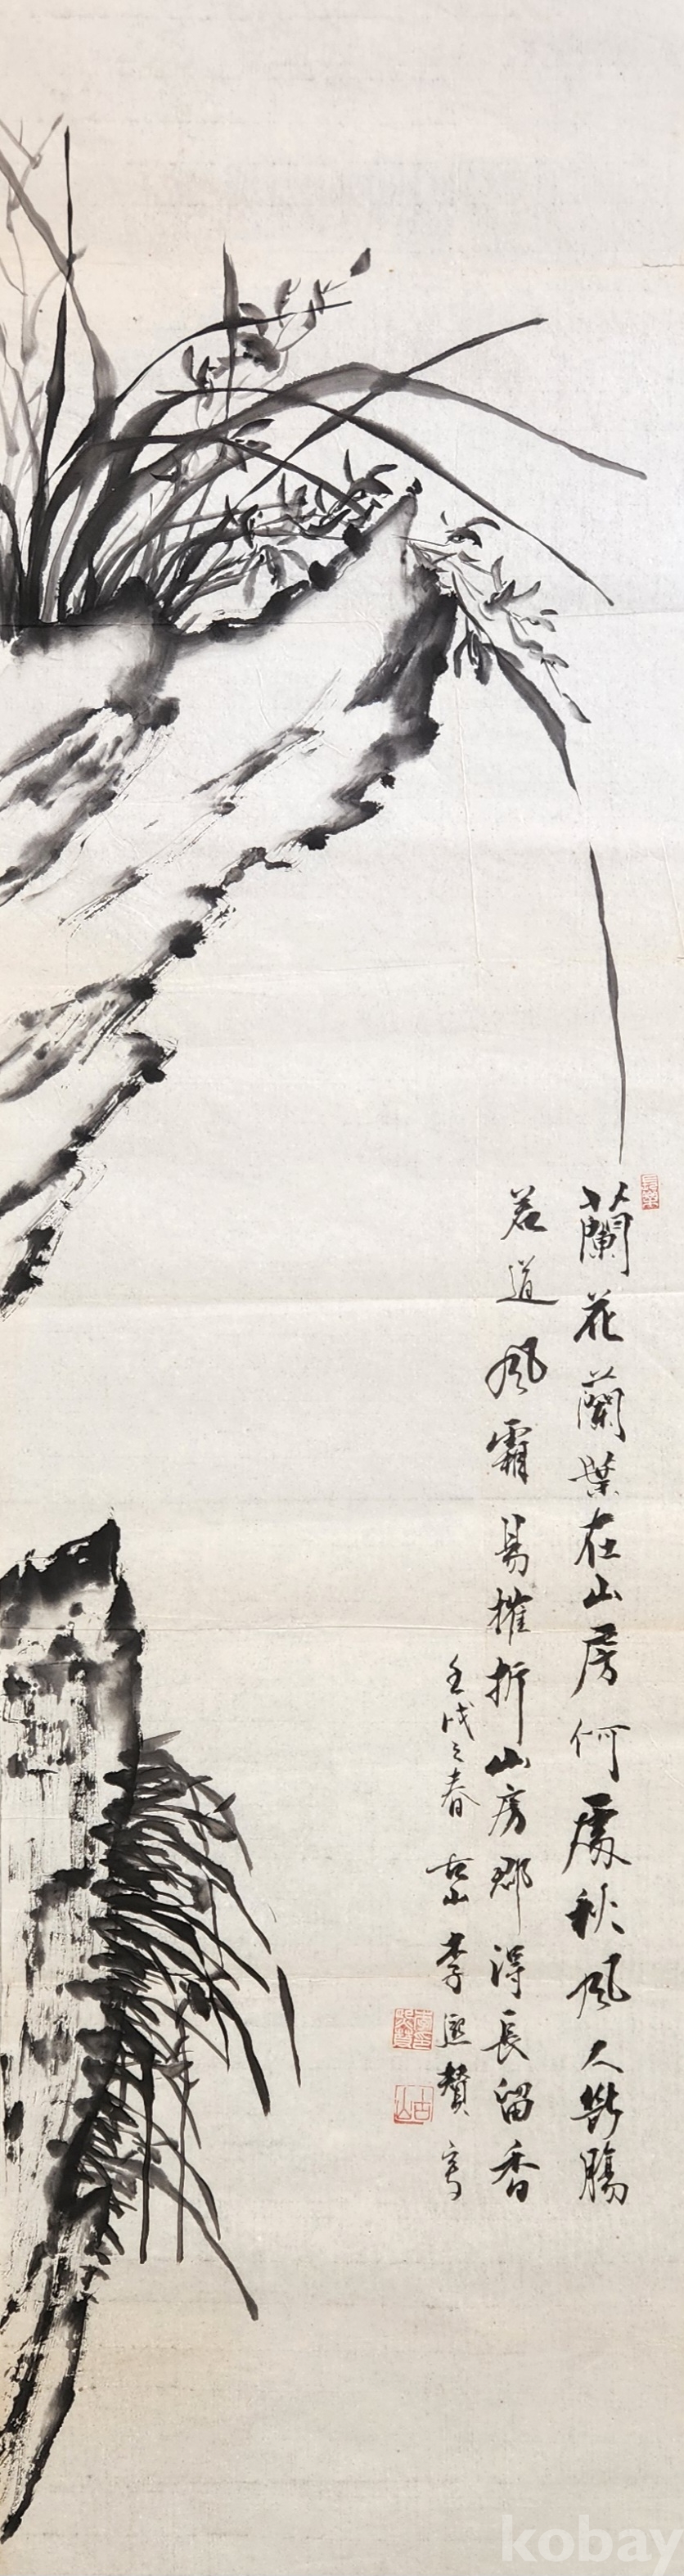 蘭花蘭葉在山房何處秋風人斷腸
若道風霜易摧折山房那得長留香
壬戌之春 古山 李熙賛 寫
古山
kobay